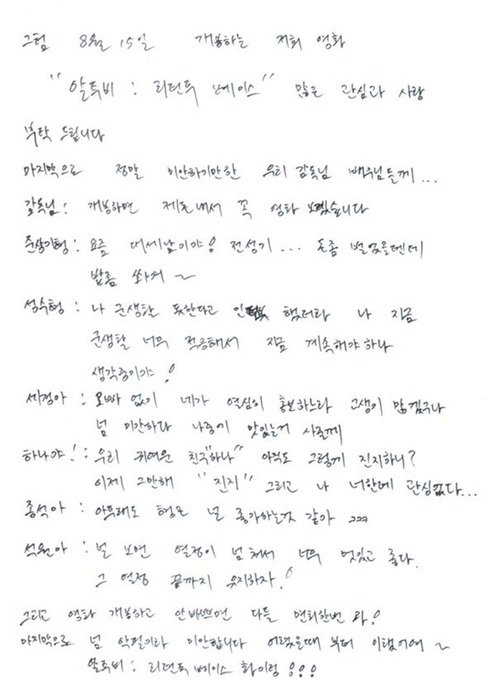 그럼 8월 15일 개봉하는 저희 영화
"알투비 : 리턴투 베이스" 많은 관심과 사랑
부탁 드립니다
마지막으로 정말 미안하기만한 우리 감독님 배우님들께...
감독님 : 개봉하면 제돈내서 꼭 영화 보겠습니다
준상이형 : 요즘 대세남이야! 전성기... 돈좀 벌었을텐데
밥좀 쏴줘 ~
성수형 : 나 군생활 못한다고 했더라 나 지금
군생활 너무 적응해서 지금 계속해야하나
생각중이야!
세경아 : 오빠 없이 네가 열심히 홍보하느라 고생이 많겠구나
넘 미안하다 나중에 맛있는거 사줄께
하나야! : 우리 귀여운 친구"하나" 아직도 그렇게 진지하니?
이제 그만해 "진지" 그리고 나 너한테 관심없다...
종석아 : 아무래도 형은 널 좋아하는것 같아 ㅋㅋㅋ
석원아 : 널 보면 열정이 넘쳐서 너무 멋있고 좋다.
그 열정 끝까지 유지하자!
그리고 영화 개봉하고 안바쁘면 다들 면회한번 와!
마지막으로 넘 악필이라 미안합니다 어렸을때 부터 이랬어여 ~
알투비 : 리턴투 베이스 화이팅!!!